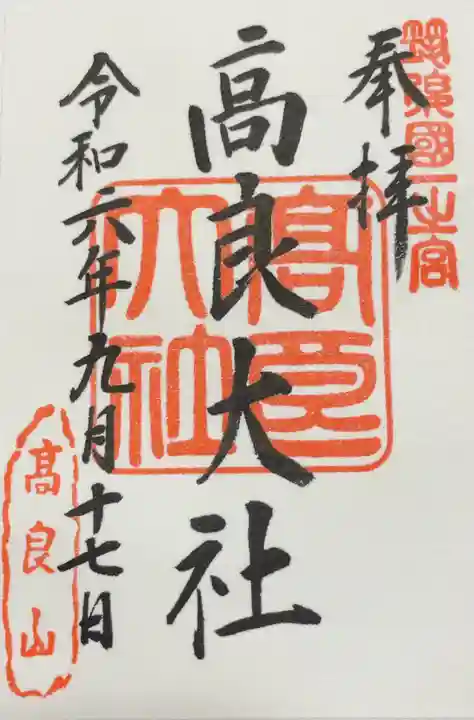 筑後國一之宮
奉拝
高良大社
高良大社
令和六年九月十七日
高良山